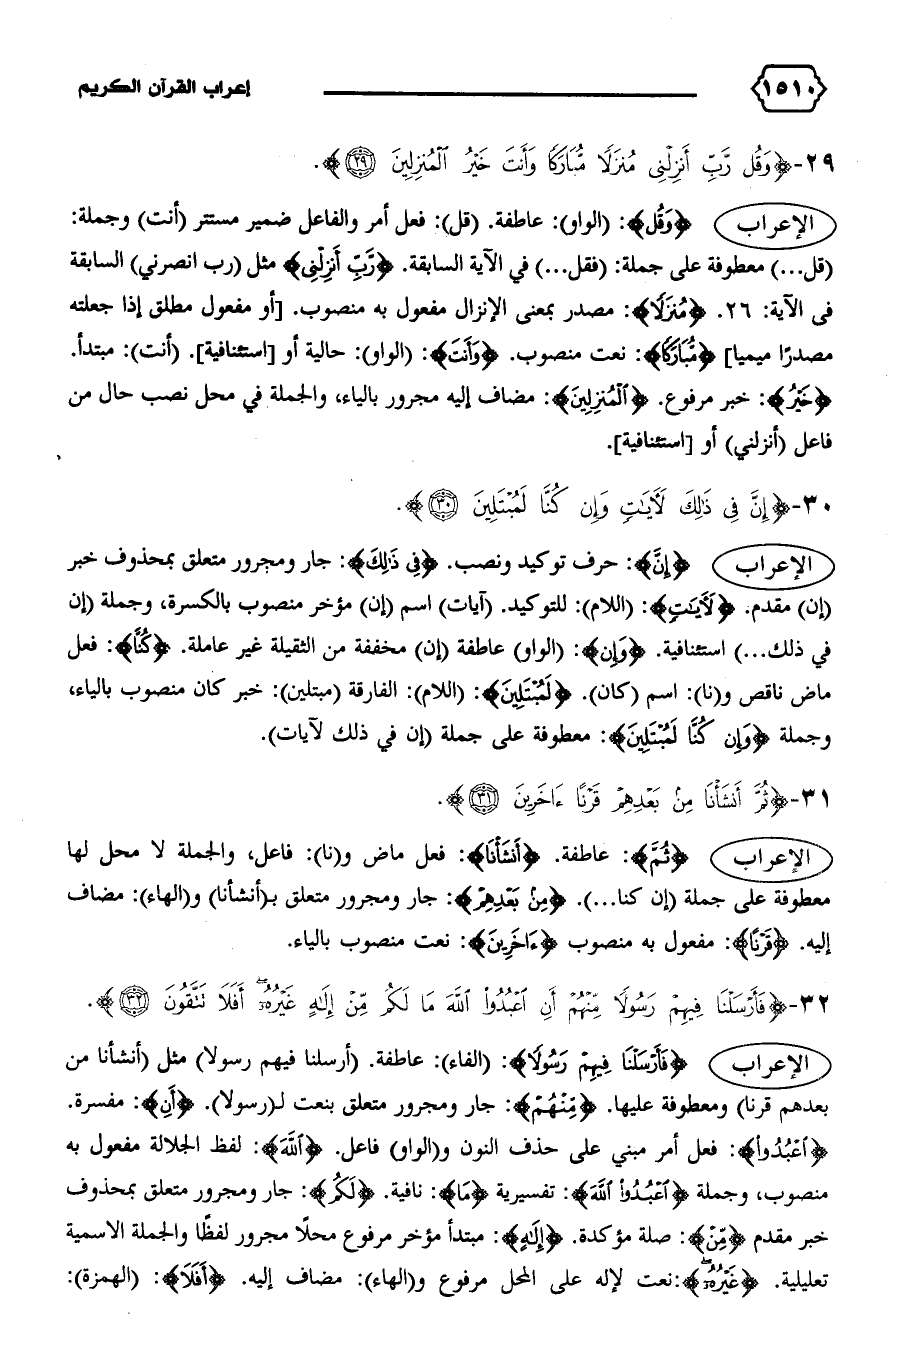 ١٥١٠ إعراب القرآن الكريم
٢٩-﴿وَقُل رَّبِّ أَنزِلْنِى مُنزَلًا مُّبَارَكًا وَأَنتَ خَيْرُ ٱلْمُنزِلِينَ ٢٩﴾.
الإعراب ﴿وَقُل﴾: (الواو): عاطفة. (قل): فعل أمر والفاعل ضمير مستتر (أنت) وجملة:
(قل...) معطوفة على جملة: (فقل...) في الآية السابقة. ﴿رَّبِّ أَنزِلْنِى﴾ مثل (رب انصرني) السابقة
فى الآية: ٢٦. ﴿مُنزَلًا﴾: مصدر بمعنى الإنزال مفعول به منصوب. [أو مفعول مطلق إذا جعلته
مصدرًا ميميا] ﴿مُّبَارَكًا﴾: نعت منصوب. ﴿وَأَنتَ﴾: (الواو): حالية أو [استئنافية]. (أنت): مبتدأ.
﴿خَيْرُ﴾: خبر مرفوع. ﴿ٱلْمُنزِلِينَ﴾: مضاف إليه مجرور بالياء، والجملة في محل نصب حال من
فاعل (أنزلني) أو [استئنافية].
٣٠-﴿إِنَّ فِى ذَٰلِكَ لَآيَٰتٍ وَإِن كُنَّا لَمُبْتَلِينَ ٣٠﴾.
الإعراب ﴿إِنَّ﴾: حرف توكيد ونصب. ﴿فِى ذَٰلِكَ﴾: جار ومجرور متعلق بمحذوف خبر
(إن) مقدم. ﴿لَآيَٰتٍ﴾: (اللام): للتوكيد. (آيات) اسم (إن) مؤخر منصوب بالكسرة، وجملة (إن
في ذلك...) استئنافية. ﴿وَإِن﴾: (الواو) عاطفة (إن) مخففة من الثقيلة غير عاملة. ﴿كُنَّا﴾: فعل
ماض ناقص و(نا): اسم (كان). ﴿لَمُبْتَلِينَ﴾: (اللام): الفارقة (مبتلين): خبر كان منصوب بالياء،
وجملة ﴿وَإِن كُنَّا لَمُبْتَلِينَ﴾: معطوفة على جملة (إن في ذلك لآيات).
٣١-﴿ثُمَّ أَنشَأْنَا مِنۢ بَعْدِهِمْ قَرْنًا ءَاخَرِينَ ٣١﴾.
الإعراب ﴿ثُمَّ﴾: عاطفة. ﴿أَنشَأْنَا﴾: فعل ماض و(نا): فاعل، والجملة لا محل لها
معطوفة على جملة (إن كنا...). ﴿مِنۢ بَعْدِهِمْ﴾: جار ومجرور متعلق بـ(أنشأنا) و(الهاء): مضاف
إليه. ﴿قَرْنًا﴾: مفعول به منصوب ﴿ءَاخَرِينَ﴾: نعت منصوب بالياء.
٣٢-﴿فَأَرْسَلْنَا فِيهِمْ رَسُولًا مِّنْهُمْ أَنِ ٱعْبُدُوا۟ ٱللَّهَ مَا لَكُم مِّنْ إِلَٰهٍ غَيْرُهُۥٓ ۖ أَفَلَا تَتَّقُونَ ٣٢﴾.
الإعراب ﴿فَأَرْسَلْنَا فِيهِمْ رَسُولًا﴾: (الفاء): عاطفة. (أرسلنا فيهم رسولا) مثل (أنشأنا من
بعدهم قرنا) ومعطوفة عليها. ﴿مِّنْهُمْ﴾: جار ومجرور متعلق بنعت لـ(رسولا). ﴿أَنِ﴾: مفسرة.
﴿ٱعْبُدُوا۟﴾: فعل أمر مبني على حذف النون و(الواو) فاعل. ﴿ٱللَّهَ﴾: لفظ الجلالة مفعول به
منصوب، وجملة ﴿ٱعْبُدُوا۟ ٱللَّهَ﴾: تفسيرية ﴿مَا﴾: نافية. ﴿لَكُم﴾: جار ومجرور متعلق بمحذوف
خبر مقدم ﴿مِّنْ﴾: صلة مؤكدة. ﴿إِلَٰهٍ﴾: مبتدأ مؤخر مرفوع محلًا مجرور لفظًا والجملة الاسمية
تعليلية. ﴿غَيْرُهُۥٓ ۖ﴾:نعت لإله على المحل مرفوع و(الهاء): مضاف إليه. ﴿أَفَلَا﴾: (الهمزة):